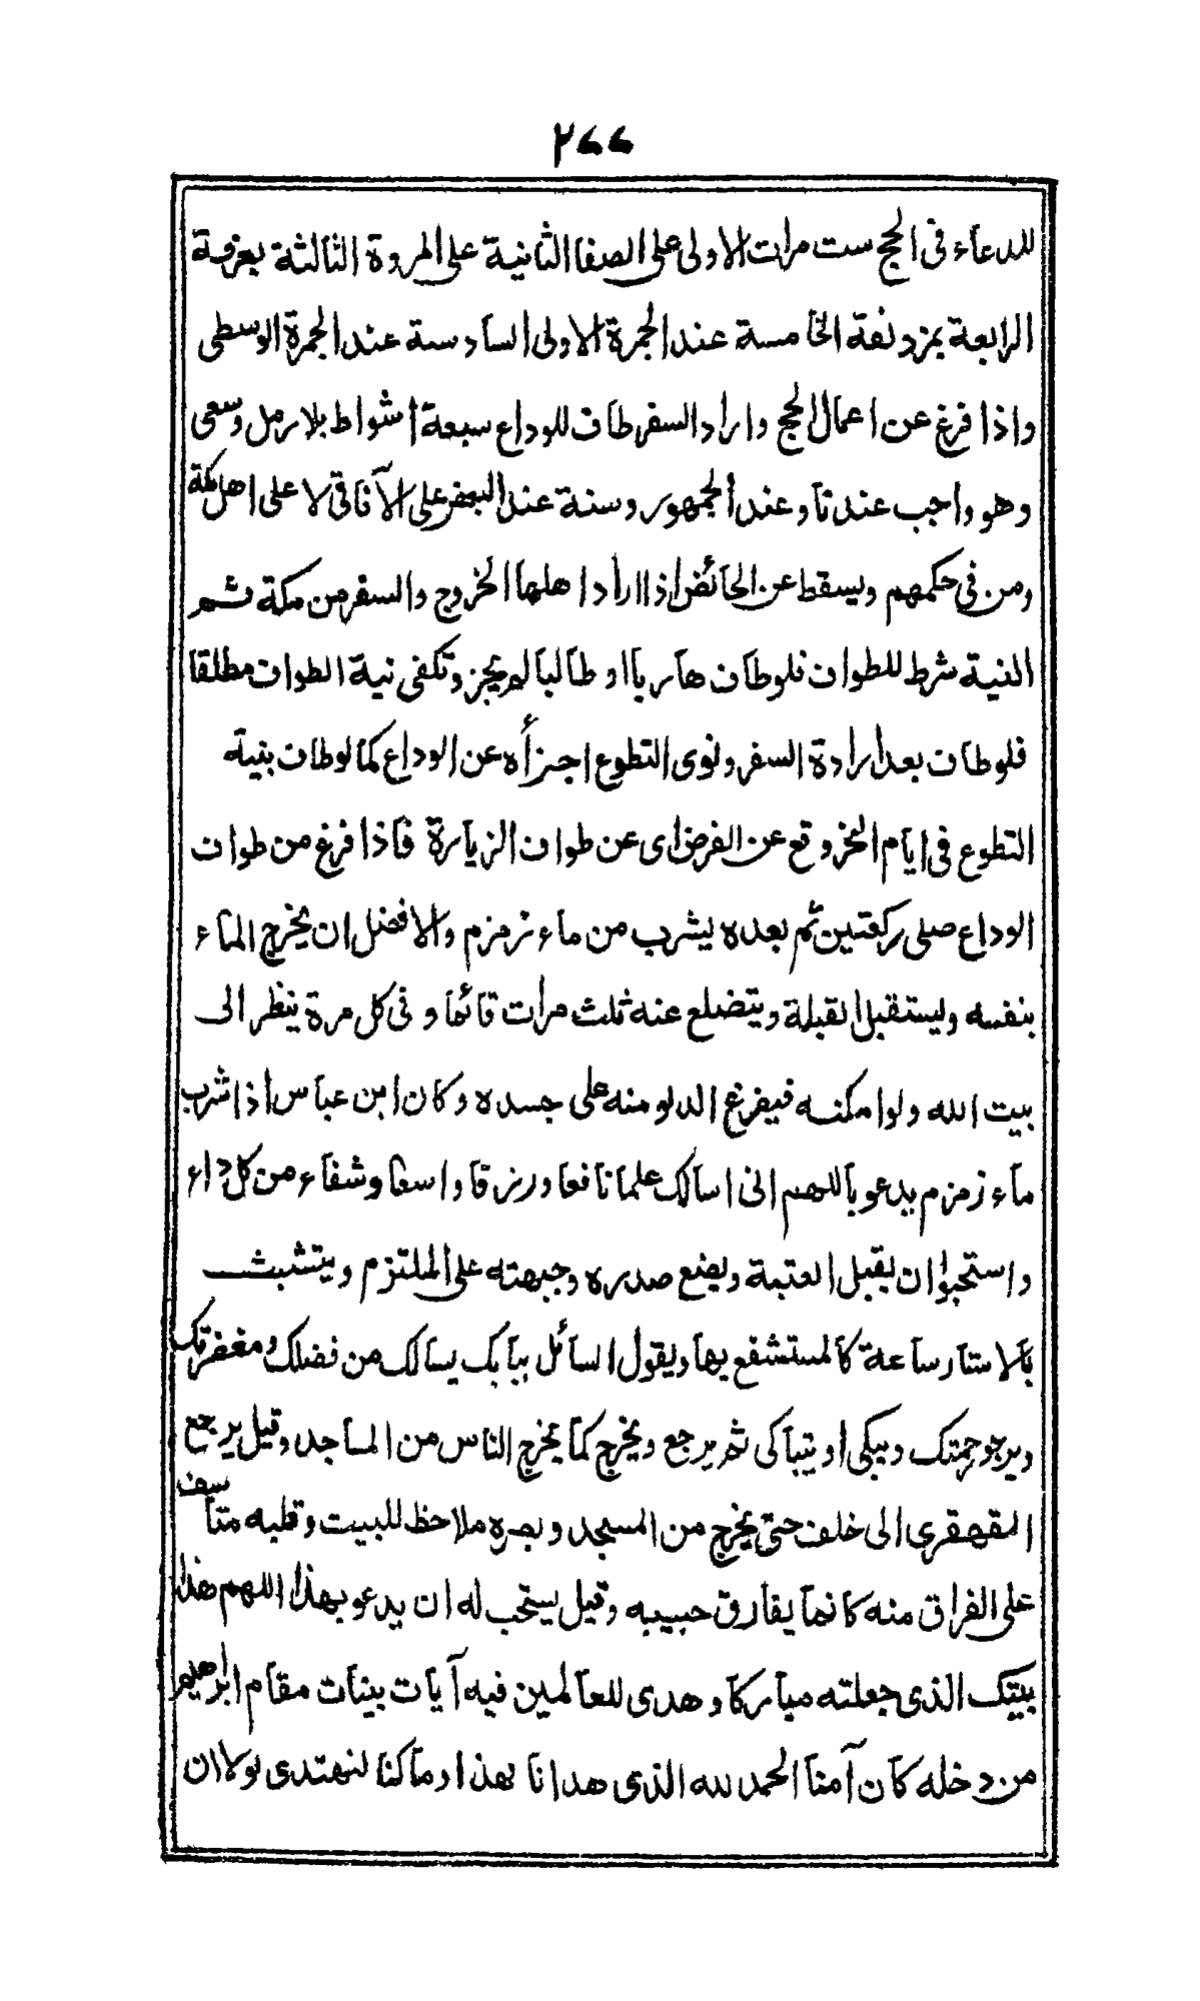 ٢٦٦
للدعاء فى الحج ست مرات الاولى على الصفا الثانية على المروة الثالثة بعرفة
الرابعة بمزدلفة الخامسة عند الجمرة الاولى السادسة عند الجمرة الوسطى
واذا فرغ عن اعمال الحج واراد السفر طاف للوداع سبعة اشواط بلا رمل وسعى
وهو واجب عندنا وعند الجمهور وسنة عند البعض على الآفاقى لا على اهل مكة
ومن فى حكمهم ويسقط عن الحائض اذا اراد اهلها الخروج والسفر من مكة ثم
النية شرط للطواف فلو طاف هاربا او طالبا لم يجز وتكفى نية الطواف مطلقا
فلو طاف بعد ارادة السفر ونوى التطوع اجزأه عن الوداع كما لو طاف بنية
التطوع فى ايام النحر وقع عن الفرض اى عن طواف الزيارة فاذا فرغ من طواف
الوداع صلى ركعتين ثم بعده يشرب من ماء زمزم والافضل ان يخرج الماء
بنفسه وليستقبل القبلة ويتضلع عنه ثلث مرات قائما و فى كل مرة ينظر الى
بيت الله ولو امكنه فيفرغ الدلو منه على جسده وكان ابن عباس اذا شرب
ماء زمزم يدعو باللهم انى اسالك علما نافعا ورزقا واسعا وشفاء من كل داء
واستحبوا ان يقبل العتبة ويضع صدره وجبهته على الملتزم ويتشبث
بالاستار ساعة كالمستشفع بها ويقول السائل ببابك يسالك من فضلك ومغفرتك
ويرجو رحمتك ويبكى او يتباكى ثم يرجع ويخرج كما يخرج الناس من المساجد وقيل يرجع
القهقرى الى خلف حتى يخرج من المسجد وبصره ملاحظ للبيت وقلبه متأسف
على الفراق منه كانما يفارق حبيبه وقيل يستحب له ان يدعو بهذا اللهم هذا
بيتك الذى جعلته مباركا وهدى للعالمين فيه آيات بينات مقام ابراهيم
من دخله كان آمنا الحمد لله الذى هدانا لهذا وما كنا لنهتدى لولا ان